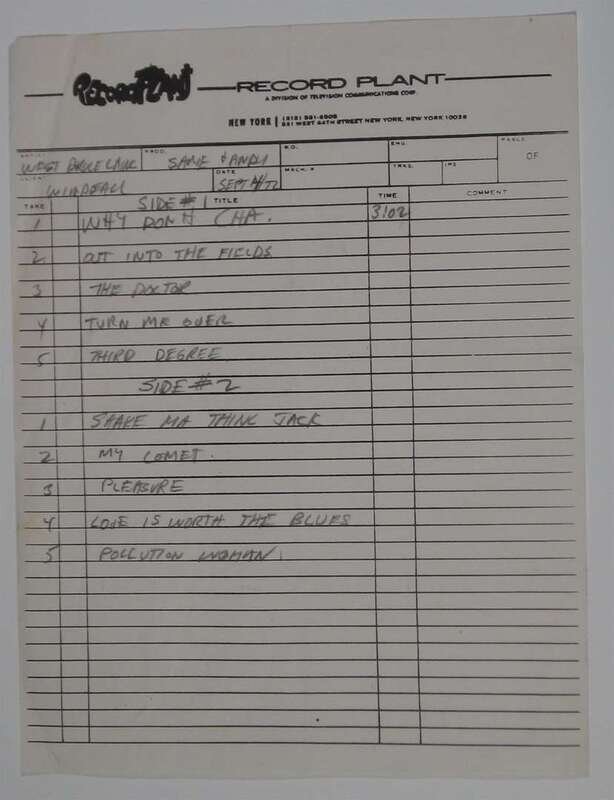 RECORD PLANT RECORD PLANT
A DIVISION OF TELEVISION COMMUNICATIONS CORP.
NEW YORK | (212) 581-6505
321 WEST 44TH STREET NEW YORK, NEW YORK 10036
ARTIST WEST BRUCE LAING PROD. SAME & ANDY W.O. ENG. REEL# OF
CLIENT WINDFALL DATE SEPT 14/72 MACH. # TRKS. IPS
TAKE SIDE #1 TITLE TIME COMMENT
1 WHY DONT CHA. 3:02
2 OUT INTO THE FIELDS
3 THE DOCTOR
4 TURN ME OVER
5 THIRD DEGREE
SIDE #2
1 SHAKE MA THING JACK
2 MY COMET.
3 PLEASURE
4 LOVE IS WORTH THE BLUES
5 POLLUTION WOMAN.